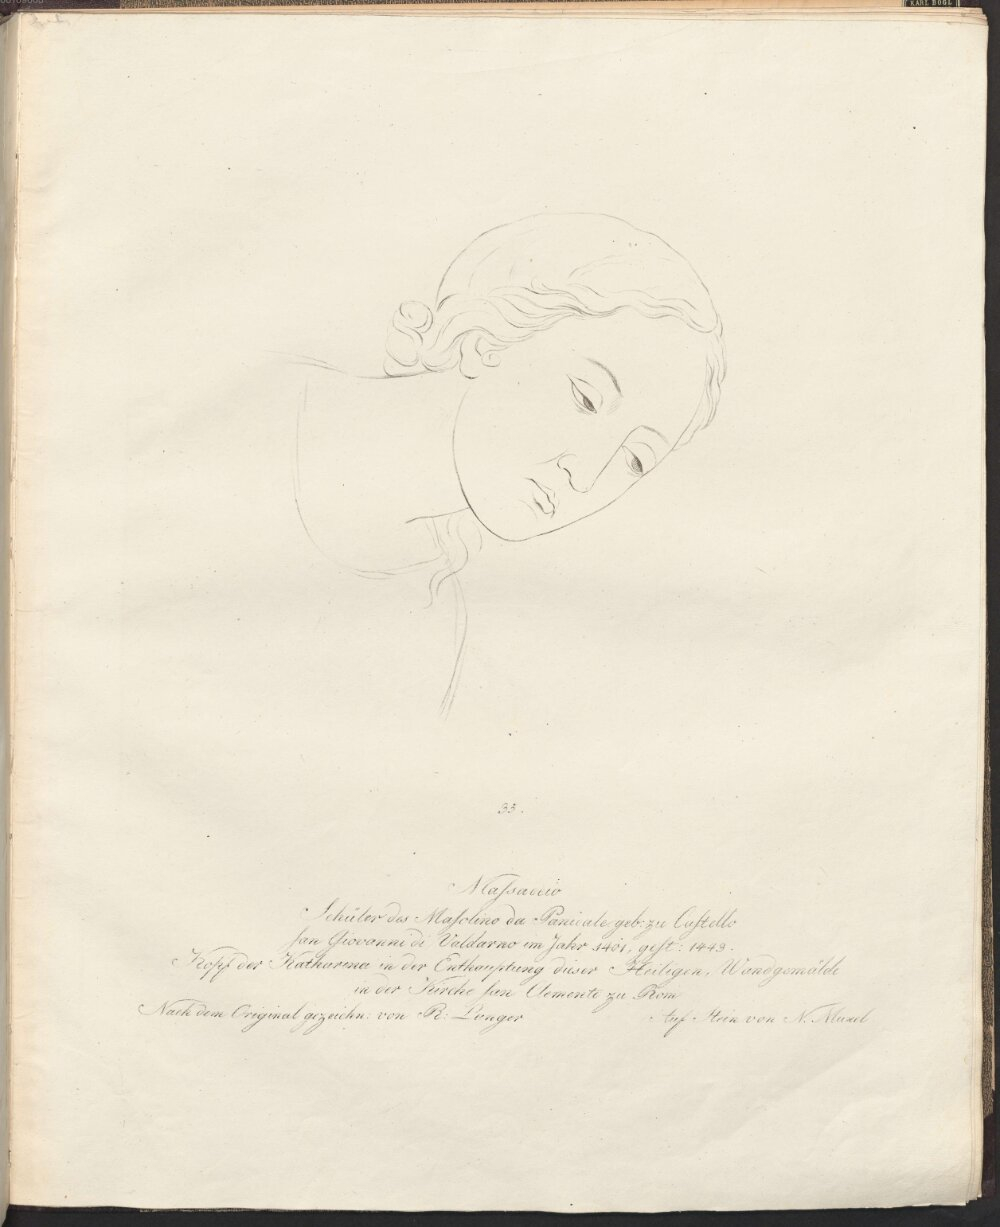 KARL BÖGL
33.
Massaccio
Schüler des Masolino da Panicale geb: zu Castello
san Giovanni di Valdarno im Jahr 1401, gest: 1443.
Kopf der Katharina in der Enthauptung dieser Heiligen, Wandgemälde
in der Kirche san Clemente zu Rom
Nach dem Original gezeichn: von R: Langer
Auf Stein von N. Muxel